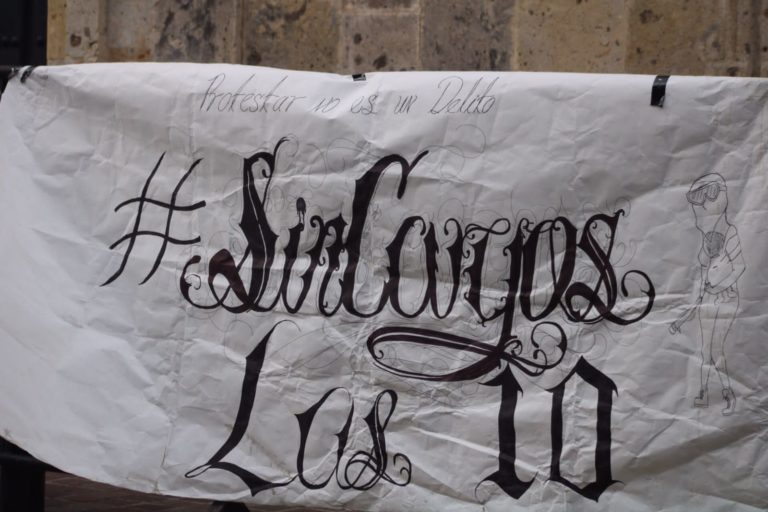 Protestar no es un Delito
#SinCargos
Las 10